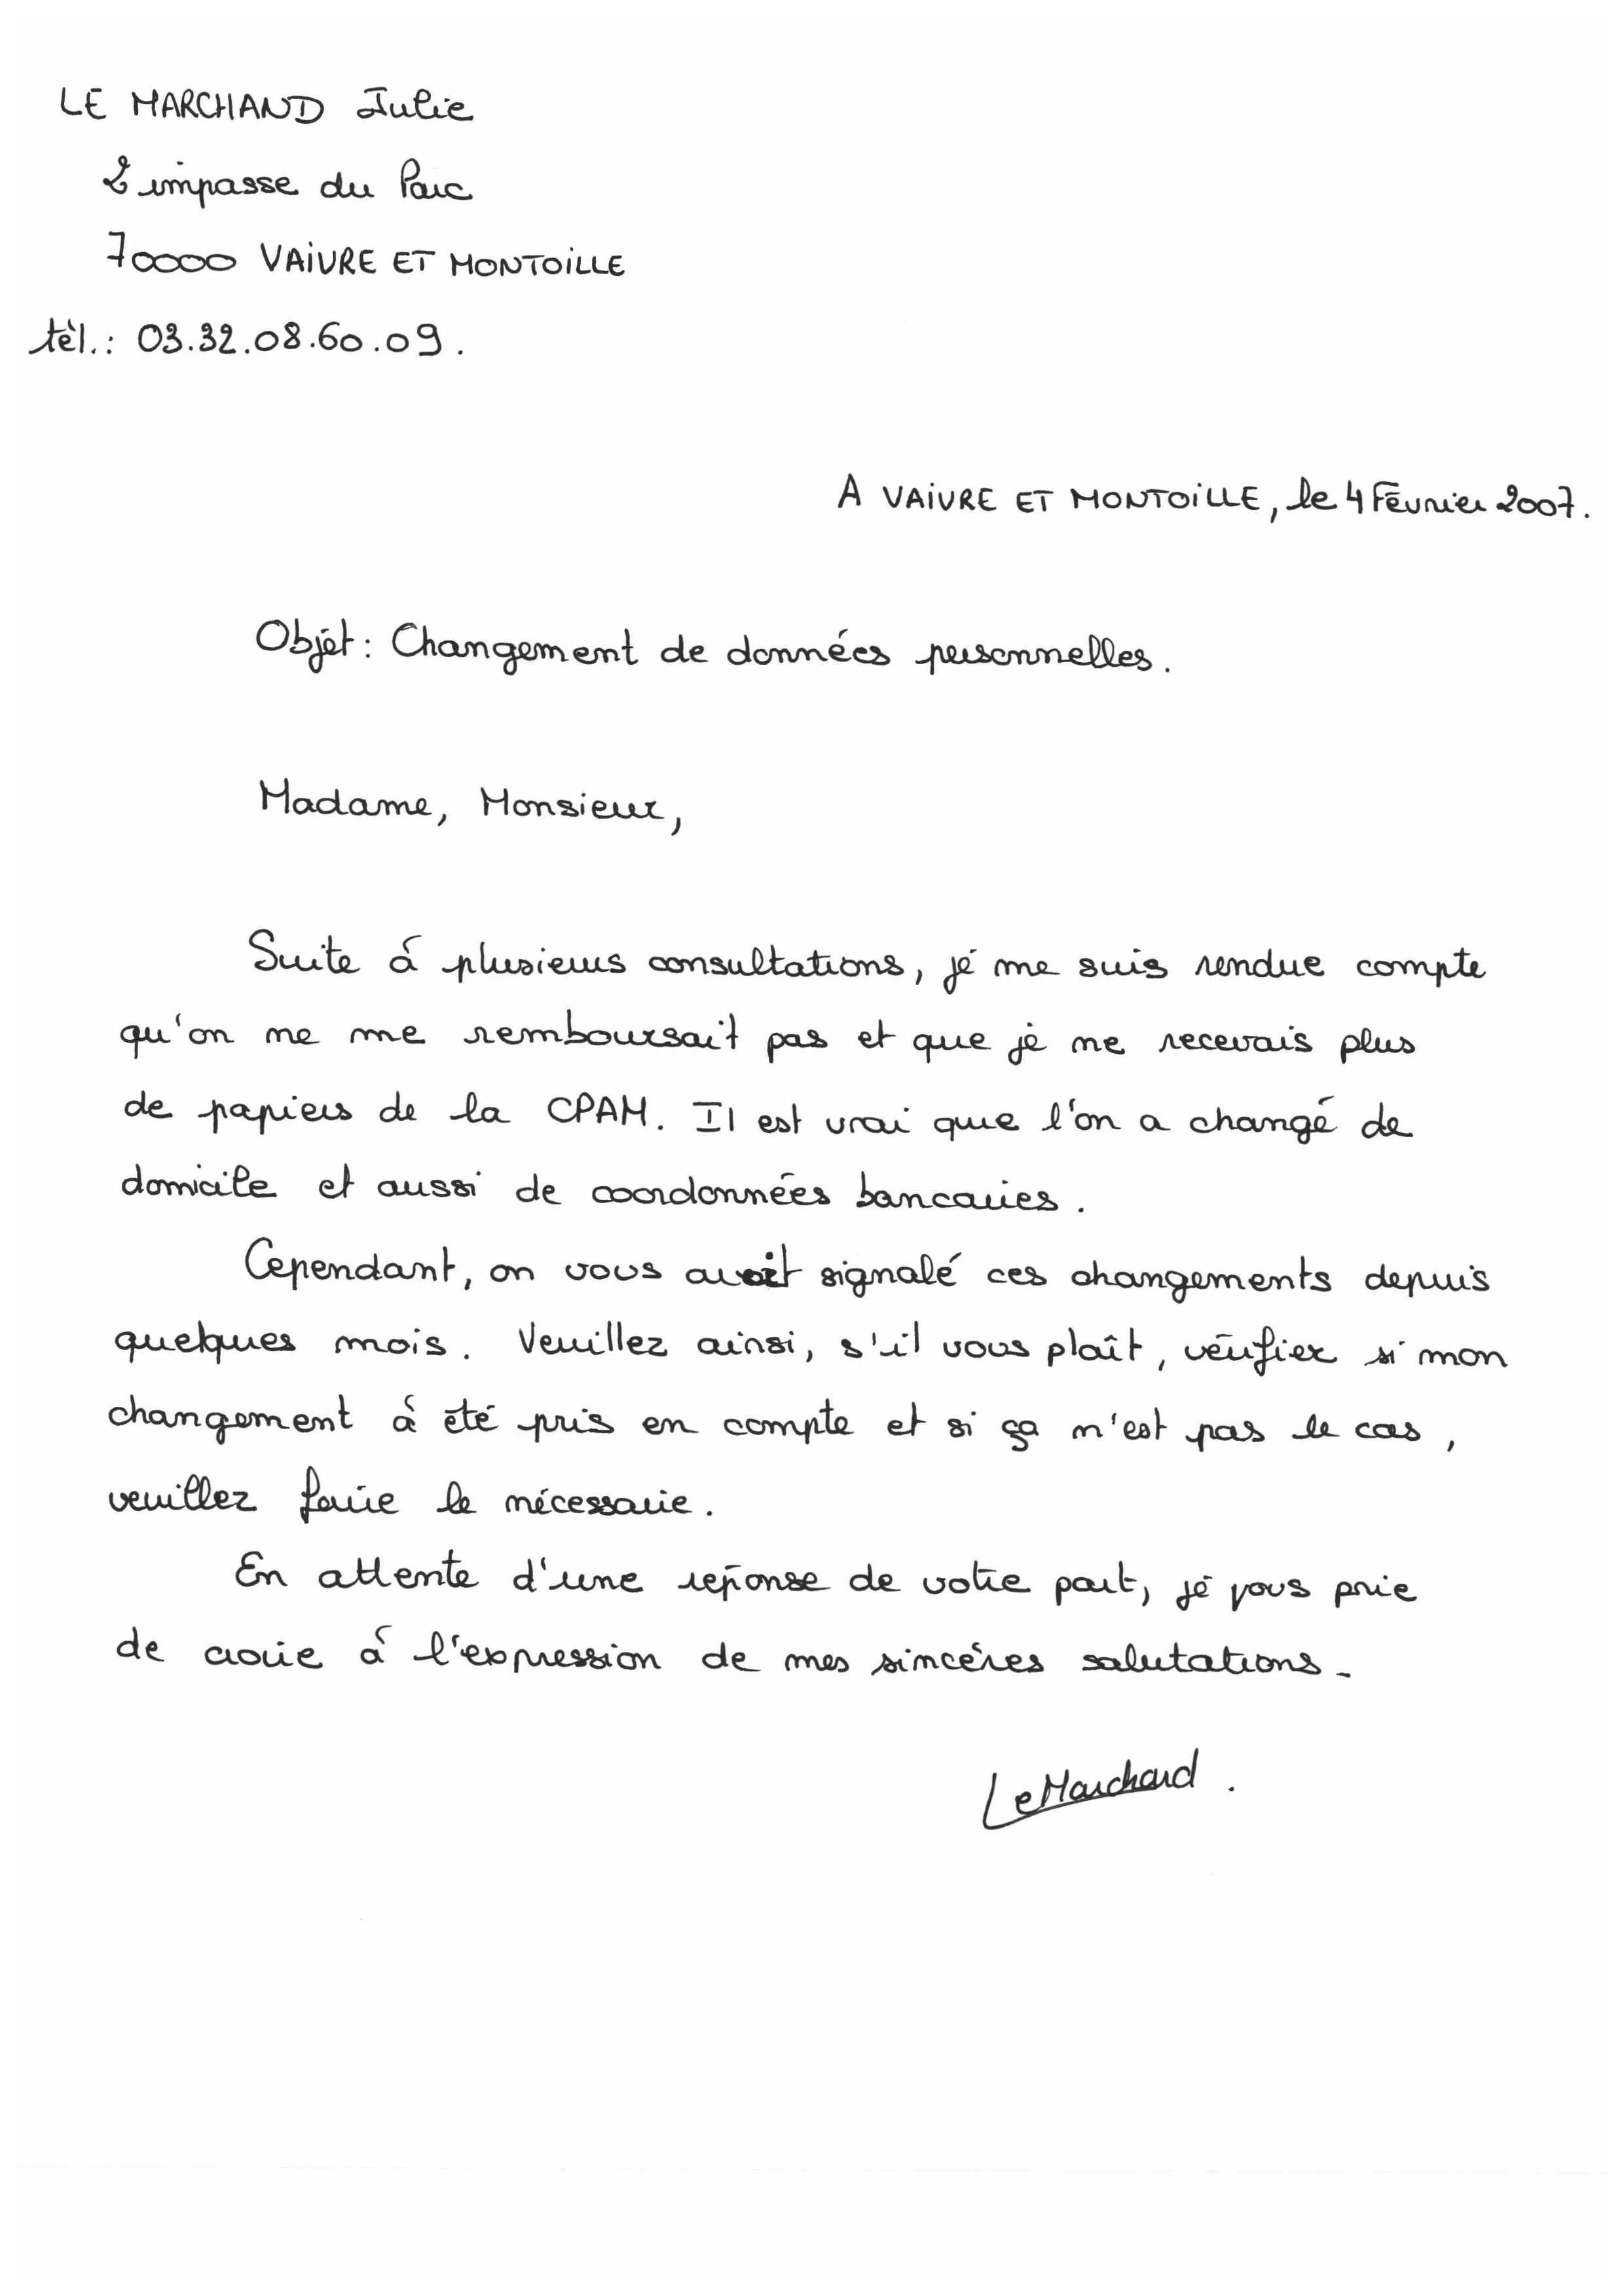 LE MARCHAND Julie
2 impasse du Parc
70000 VAIVRE ET MONTOILLE
tèl.: 03.32.08.60.09.
A VAIVRE ET MONTOILLE, le 4 Février 2007.
Objet: Changement de données personnelles.
Madame, Monsieur,
Suite à plusieurs consultations, je me suis rendue compte
qu'on ne me remboursait pas et que je ne recevais plus
de papiers de la CPAM. Il est vrai que l'on a changé de
domicile et aussi de coordonnées bancaires.
Cependant, on vous avait signalé ces changements depuis
quelques mois. Veuillez ainsi, s'il vous plaît, vérifier si mon
changement à été pris en compte et si ça n'est pas le cas,
veuillez faire le nécessaire.
En attente d'une réponse de votre part, je vous prie
de croire à l'expression de mes sincères salutations.
Le Marchand.